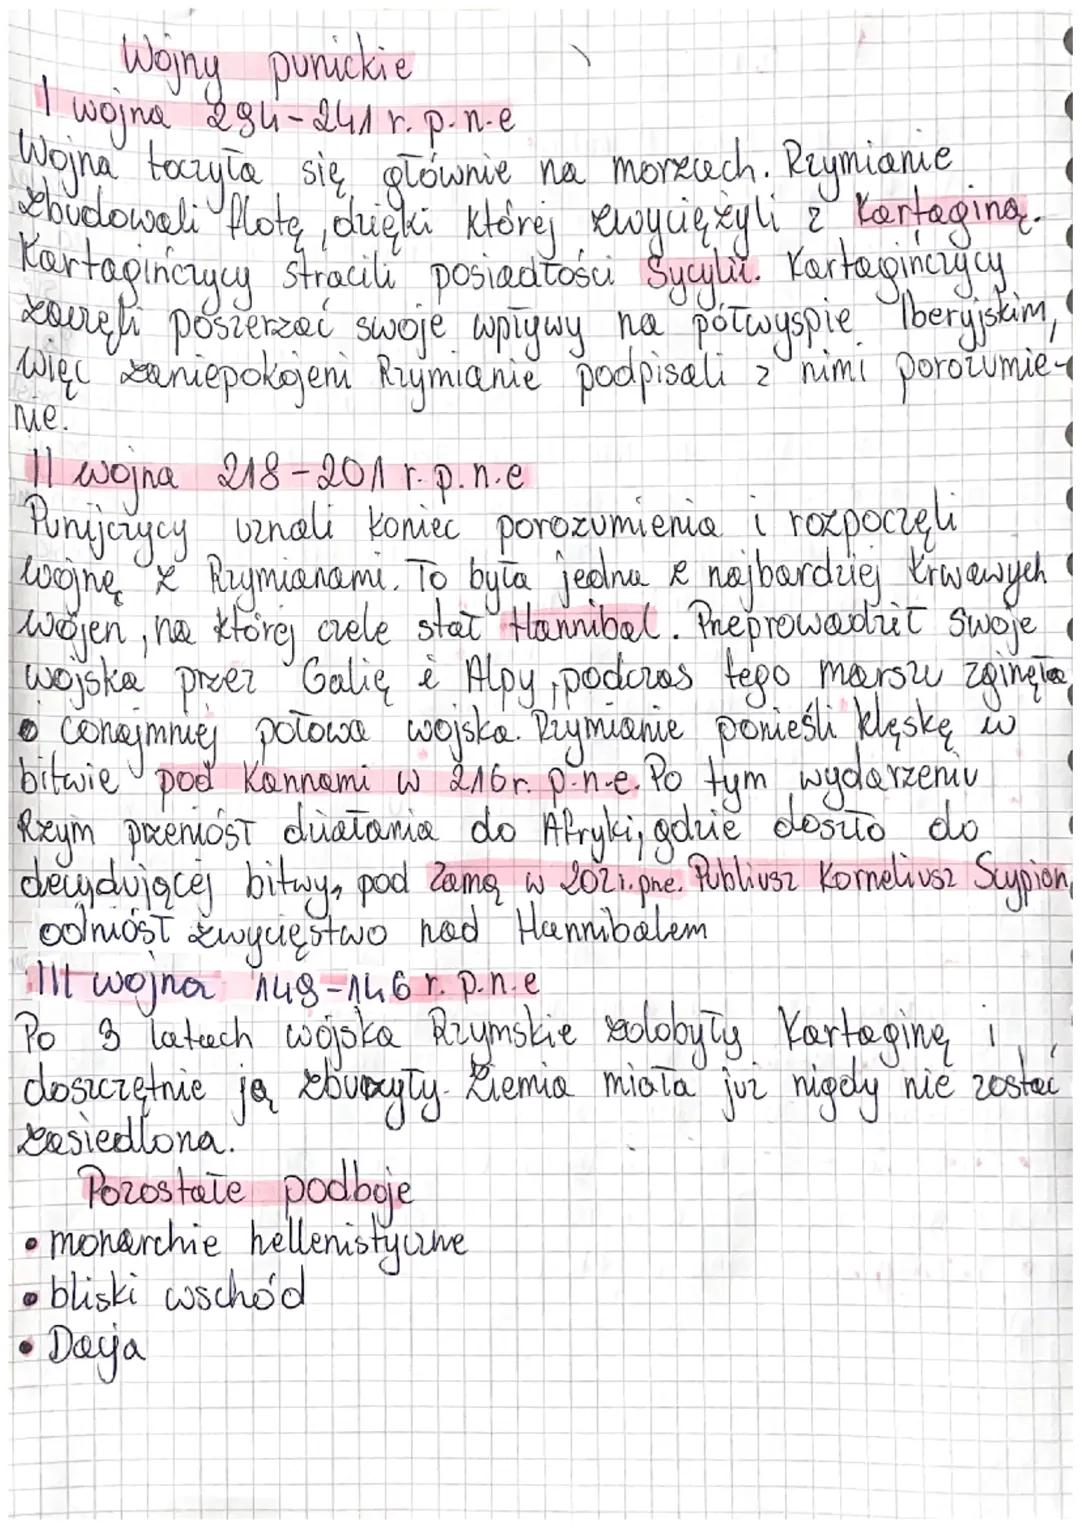 Wojny punickie
I wojna 294-241 r. p.n.e
Wojna toczyła się głównie na morzach. Rzymianie
zbudowali flotę, dzięki której zwyciężyli z Kartaginą.
Kartagińczycy stracili posiadłości Sycylii. Kartagińczycy
zaczęli poszerzać swoje wpływy na półwyspie Iberyjskim,
więc zaniepokojeni Rzymianie podpisali z nimi porozumie-
nie.
II wojna 218-201 r. p.n.e
Punijczycy uznali koniec porozumienia i rozpoczęli
wojnę z Rzymianami. To była jedna z najbardziej krwawych
wojen, na której czele stał Hannibal. Przeprowadził swoje
wojska przez Galię i Alpy, podczas tego marszu zginęła
conajmniej połowa wojska. Rzymianie ponieśli klęskę w
bitwie pod Kannami w 216 r. p.n.e. Po tym wydarzeniu
Rzym przeniósł działania do Afryki, gdzie doszło do
decydującej bitwy, pod Zamą w 202 r. pne. Publiusz Korneliusz Scypion,
odniósł zwycięstwo nad Hannibalem
III wojna 149-146 r. p.n.e
Po 3 latach wojska Rzymskie zdobyły Kartaginę i
doszczętnie ją zburzyły. Ziemia miała już nigdy nie zostać
zasiedlona.
Pozostałe podboje
• monarchie hellenistyczne
• bliski wschód
• Dacja